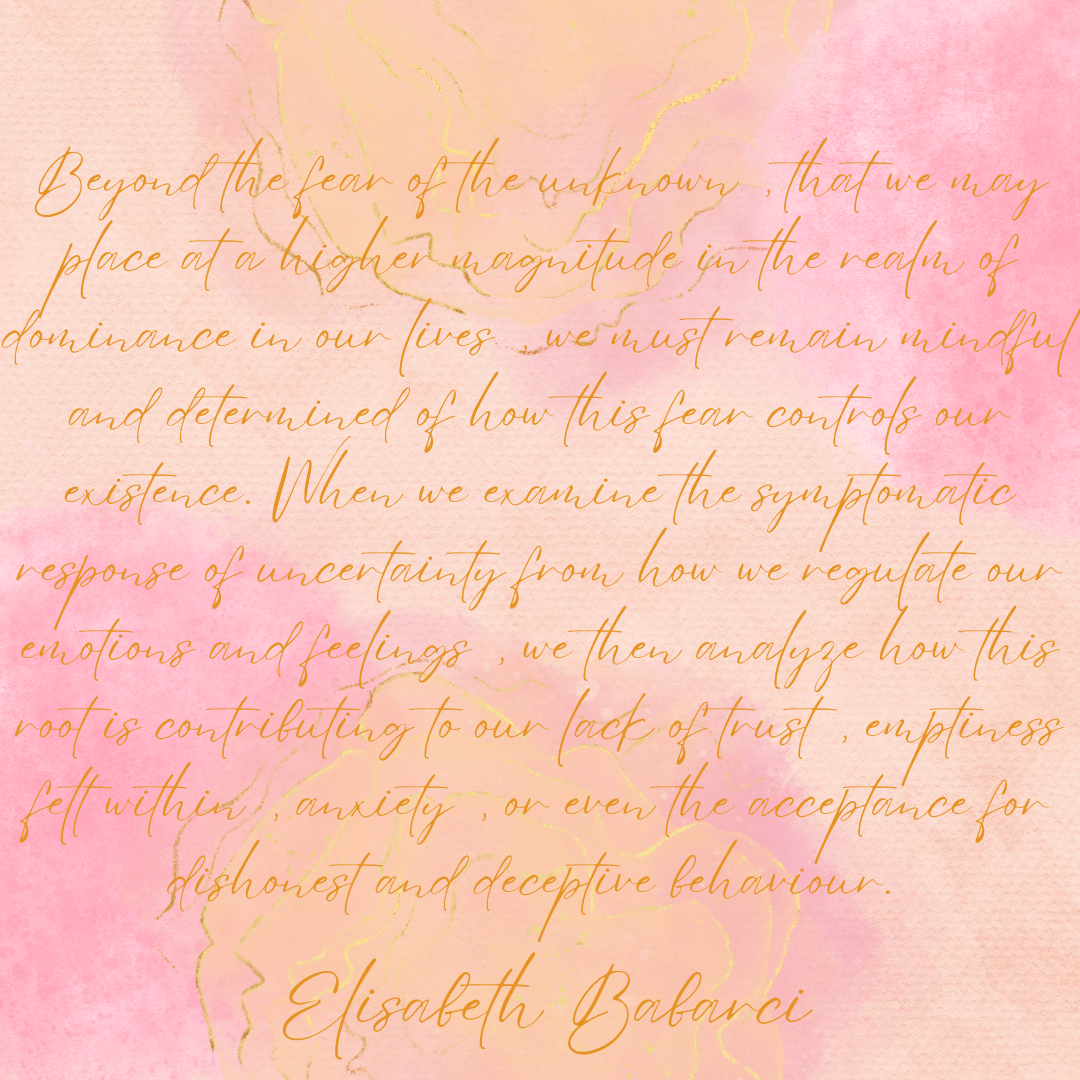 Beyond the fear of the unknown , that we may
place at a higher magnitude in the realm of
dominance in our lives , we must remain mindful
and determined of how this fear controls our
existence. When we examine the symptomatic
response of uncertainty from how we regulate our
emotions and feelings , we then analyze how this
root is contributing to our lack of trust , emptiness
felt within , anxiety , or even the acceptance for
dishonest and deceptive behaviour.
Elisabeth Babarci